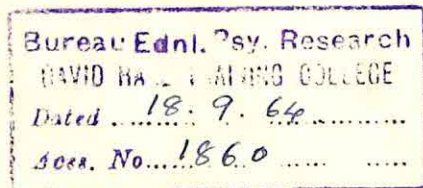 Bureau Ednl. Psy. Research
DAVID HARE TRAINING COLLEGE
Dated ...18.9.64...
Accs. No...1860...